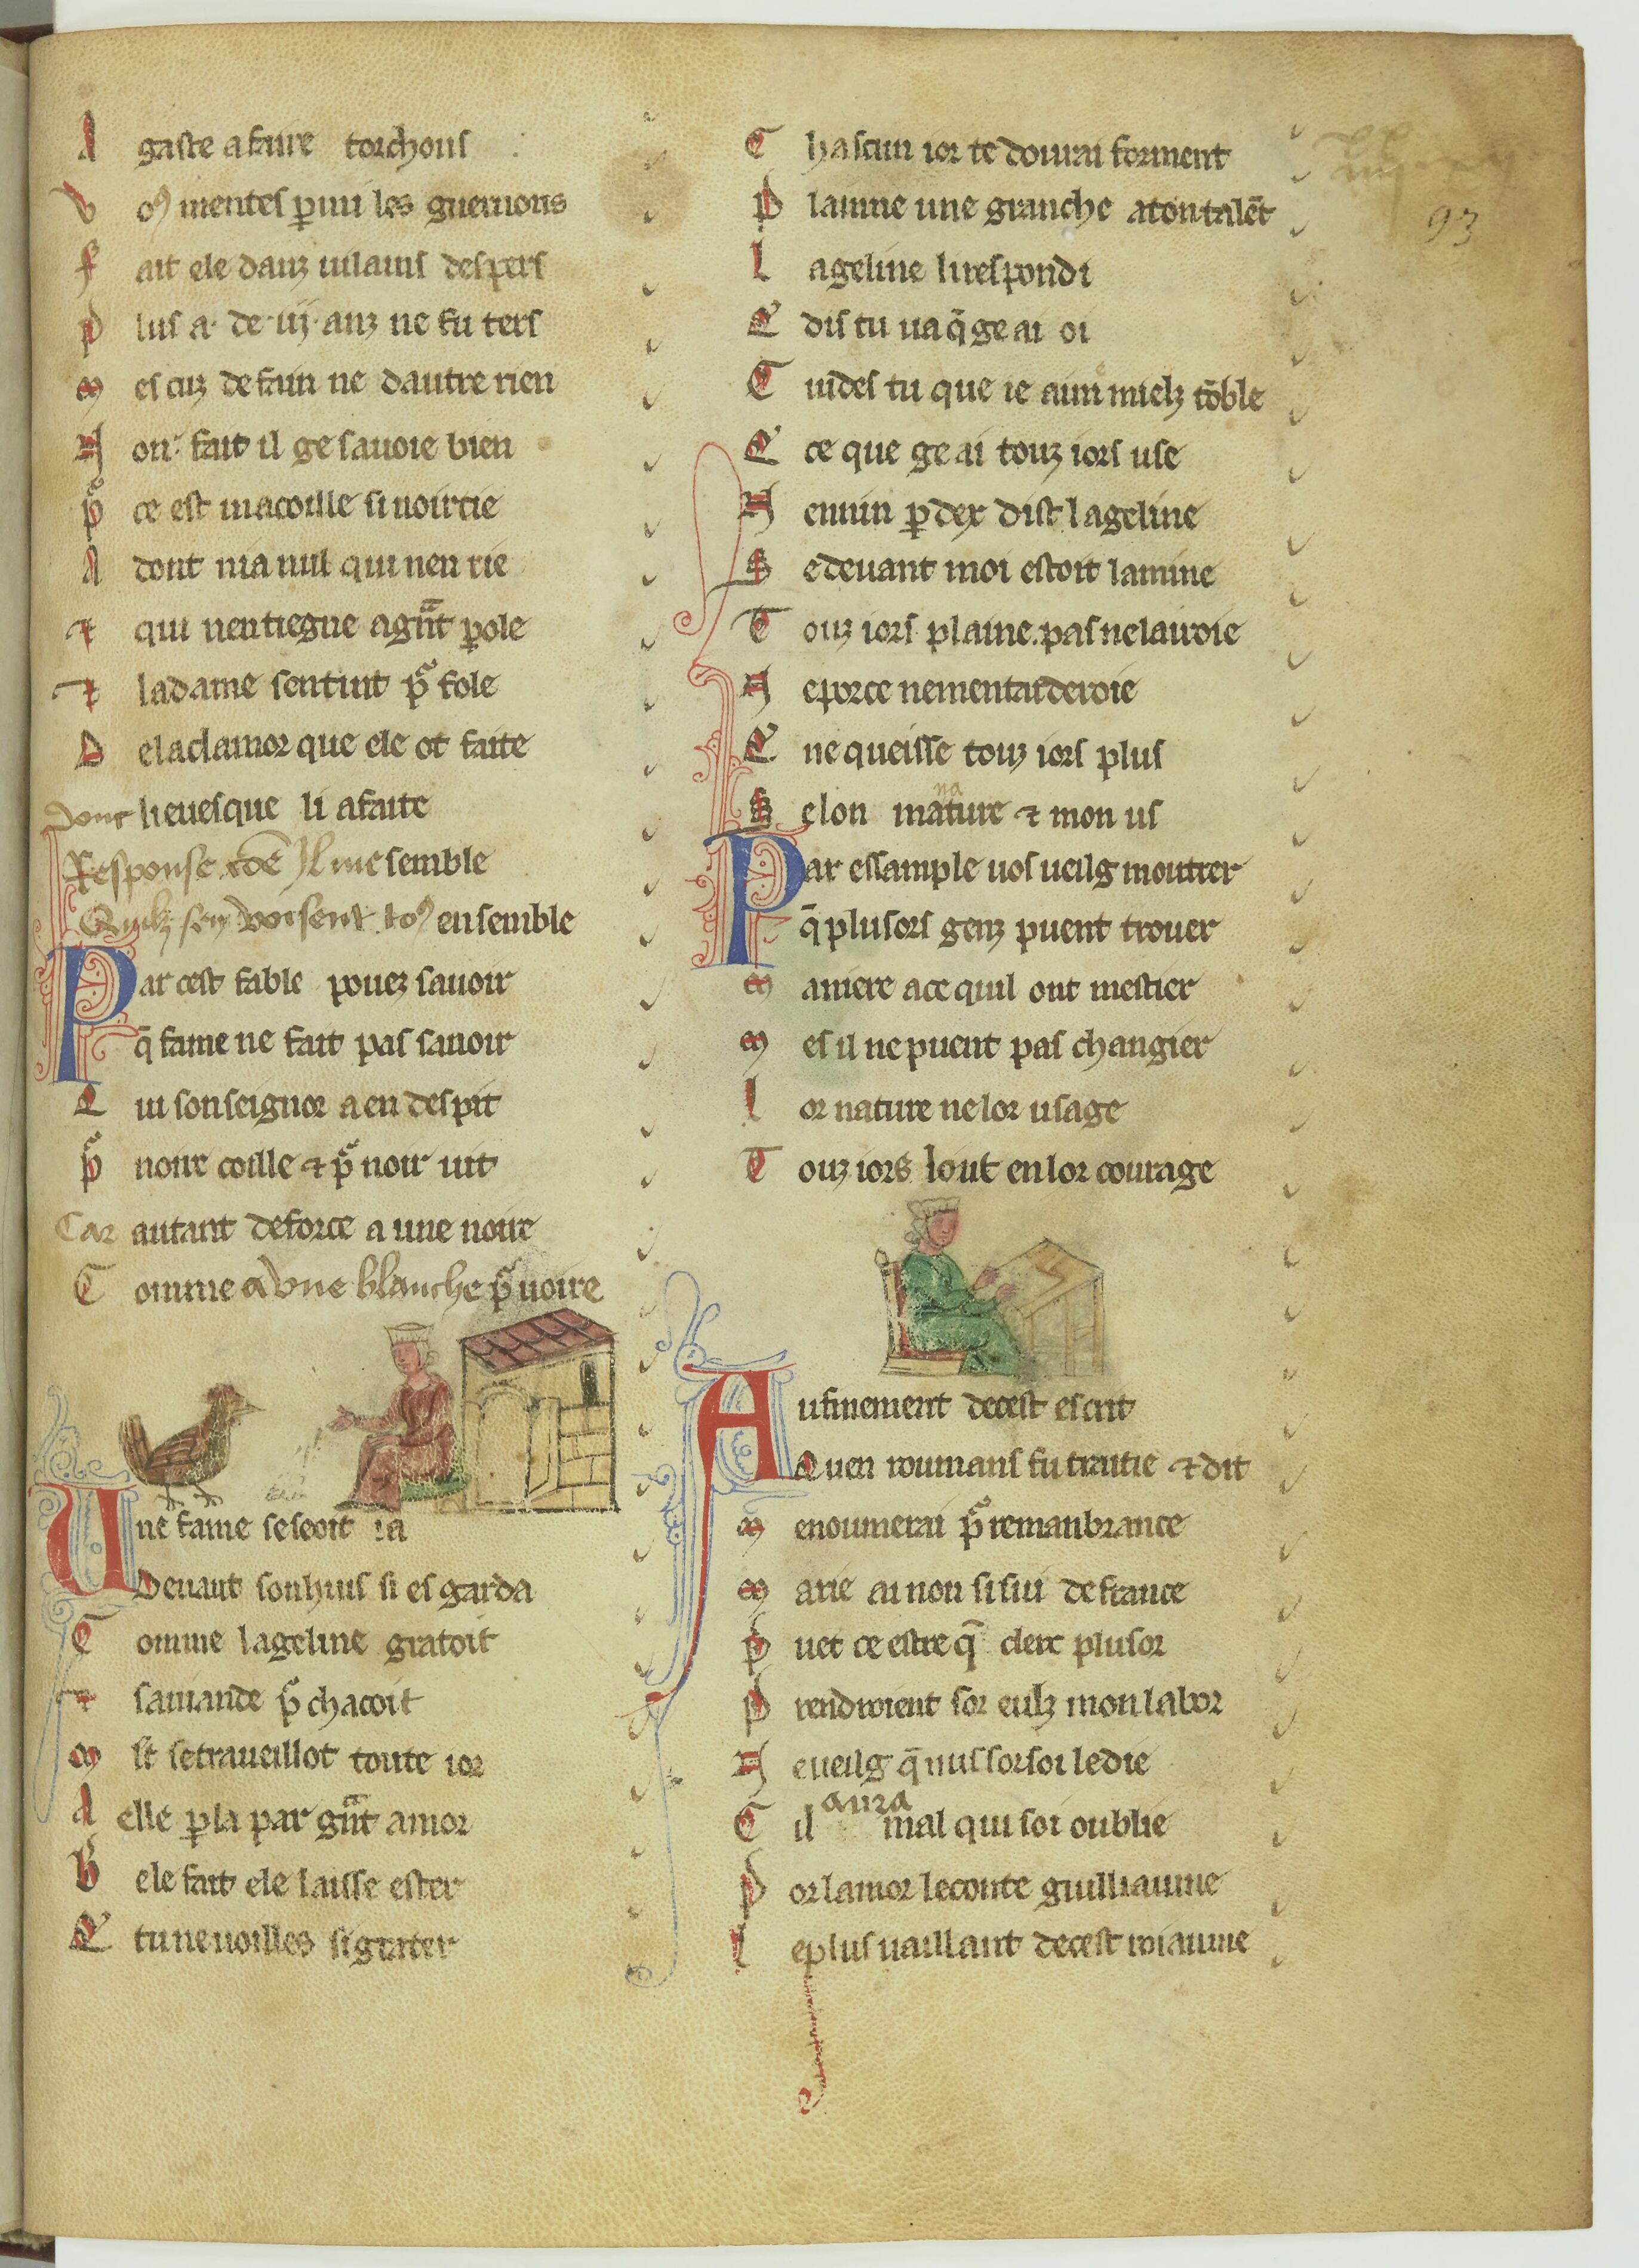 A gaste a faire torchons
V oꝰ mentes ꝑmi les guernons
F ait ele danz uilains despers
P lus a · de · iij · anz ne fu ters
M es cuz de fain ne dautre rien
N on · fait il ge sauoie bien
P ͛ ce est ma coille si noircie
A dont nia nul qui nen rie
⁊ qui nen tiegne a gñt ꝑole
⁊ la dame sen tint p ͛ fole
D e la clamor que ele ot faite
Dont li euesque li a faite
Response et dē Il me semble
Quilz sen voisent toꝰ ensemble
Par cest fable pouez sauoir
q̄ fame ne fait pas sauoir
Q ui son seignor a en despit
P ͛ noire coille ⁊ p ͛ noir uit
Car autant de force a une noire
C omme a vne blanche p ͛ uoire
Une fame se seoit ia
Deuant son huis si esgarda
C omme la geline gratoit
⁊ sa uiande p ͛chacoit
M lt se traueillot toute ior
A elle ꝑla par gñt amor
B ele fait ele laisse ester
Q tu ne uoilles si grater
C hascun ior te dourai forment
P laine une granche a ton talēt
L a geline li respondi
Q dis tu ua q̄ ge ai oi
C uides tu que ie aim mielz tō ble
Q ce que ge ai touz iors use
N ennin ꝑ dex dist la geline
S e deuant moi estoit la mine
T ouz iors plaine . pas ne lairoie
N e por ce ne men tarderoie
Q ne queisse touz iors plus
S elon ma nature ⁊ mon us
Par essample uos ueilg moutrer
q̄ plusors genz puent trouer
M aniere a ce quil ont mestier
M es il ne puent pas changier
L or nature ne lor usage
T ouz iors lout en lor courage
Au finement de cest escrit
Quen roumans fu traitie ⁊ dit
M e noumerai p ͛ remanbrance
M arie ai non si sui de france
P uet ce estre q̄ clerc plusor
P rendroient sor eulz mon labor
N e ueilg q̄ nus sor soi le die
C il aura mal qui soi oublie
P or lamor le conte guilliaume
L e plus uaillant de cest roiaume
93